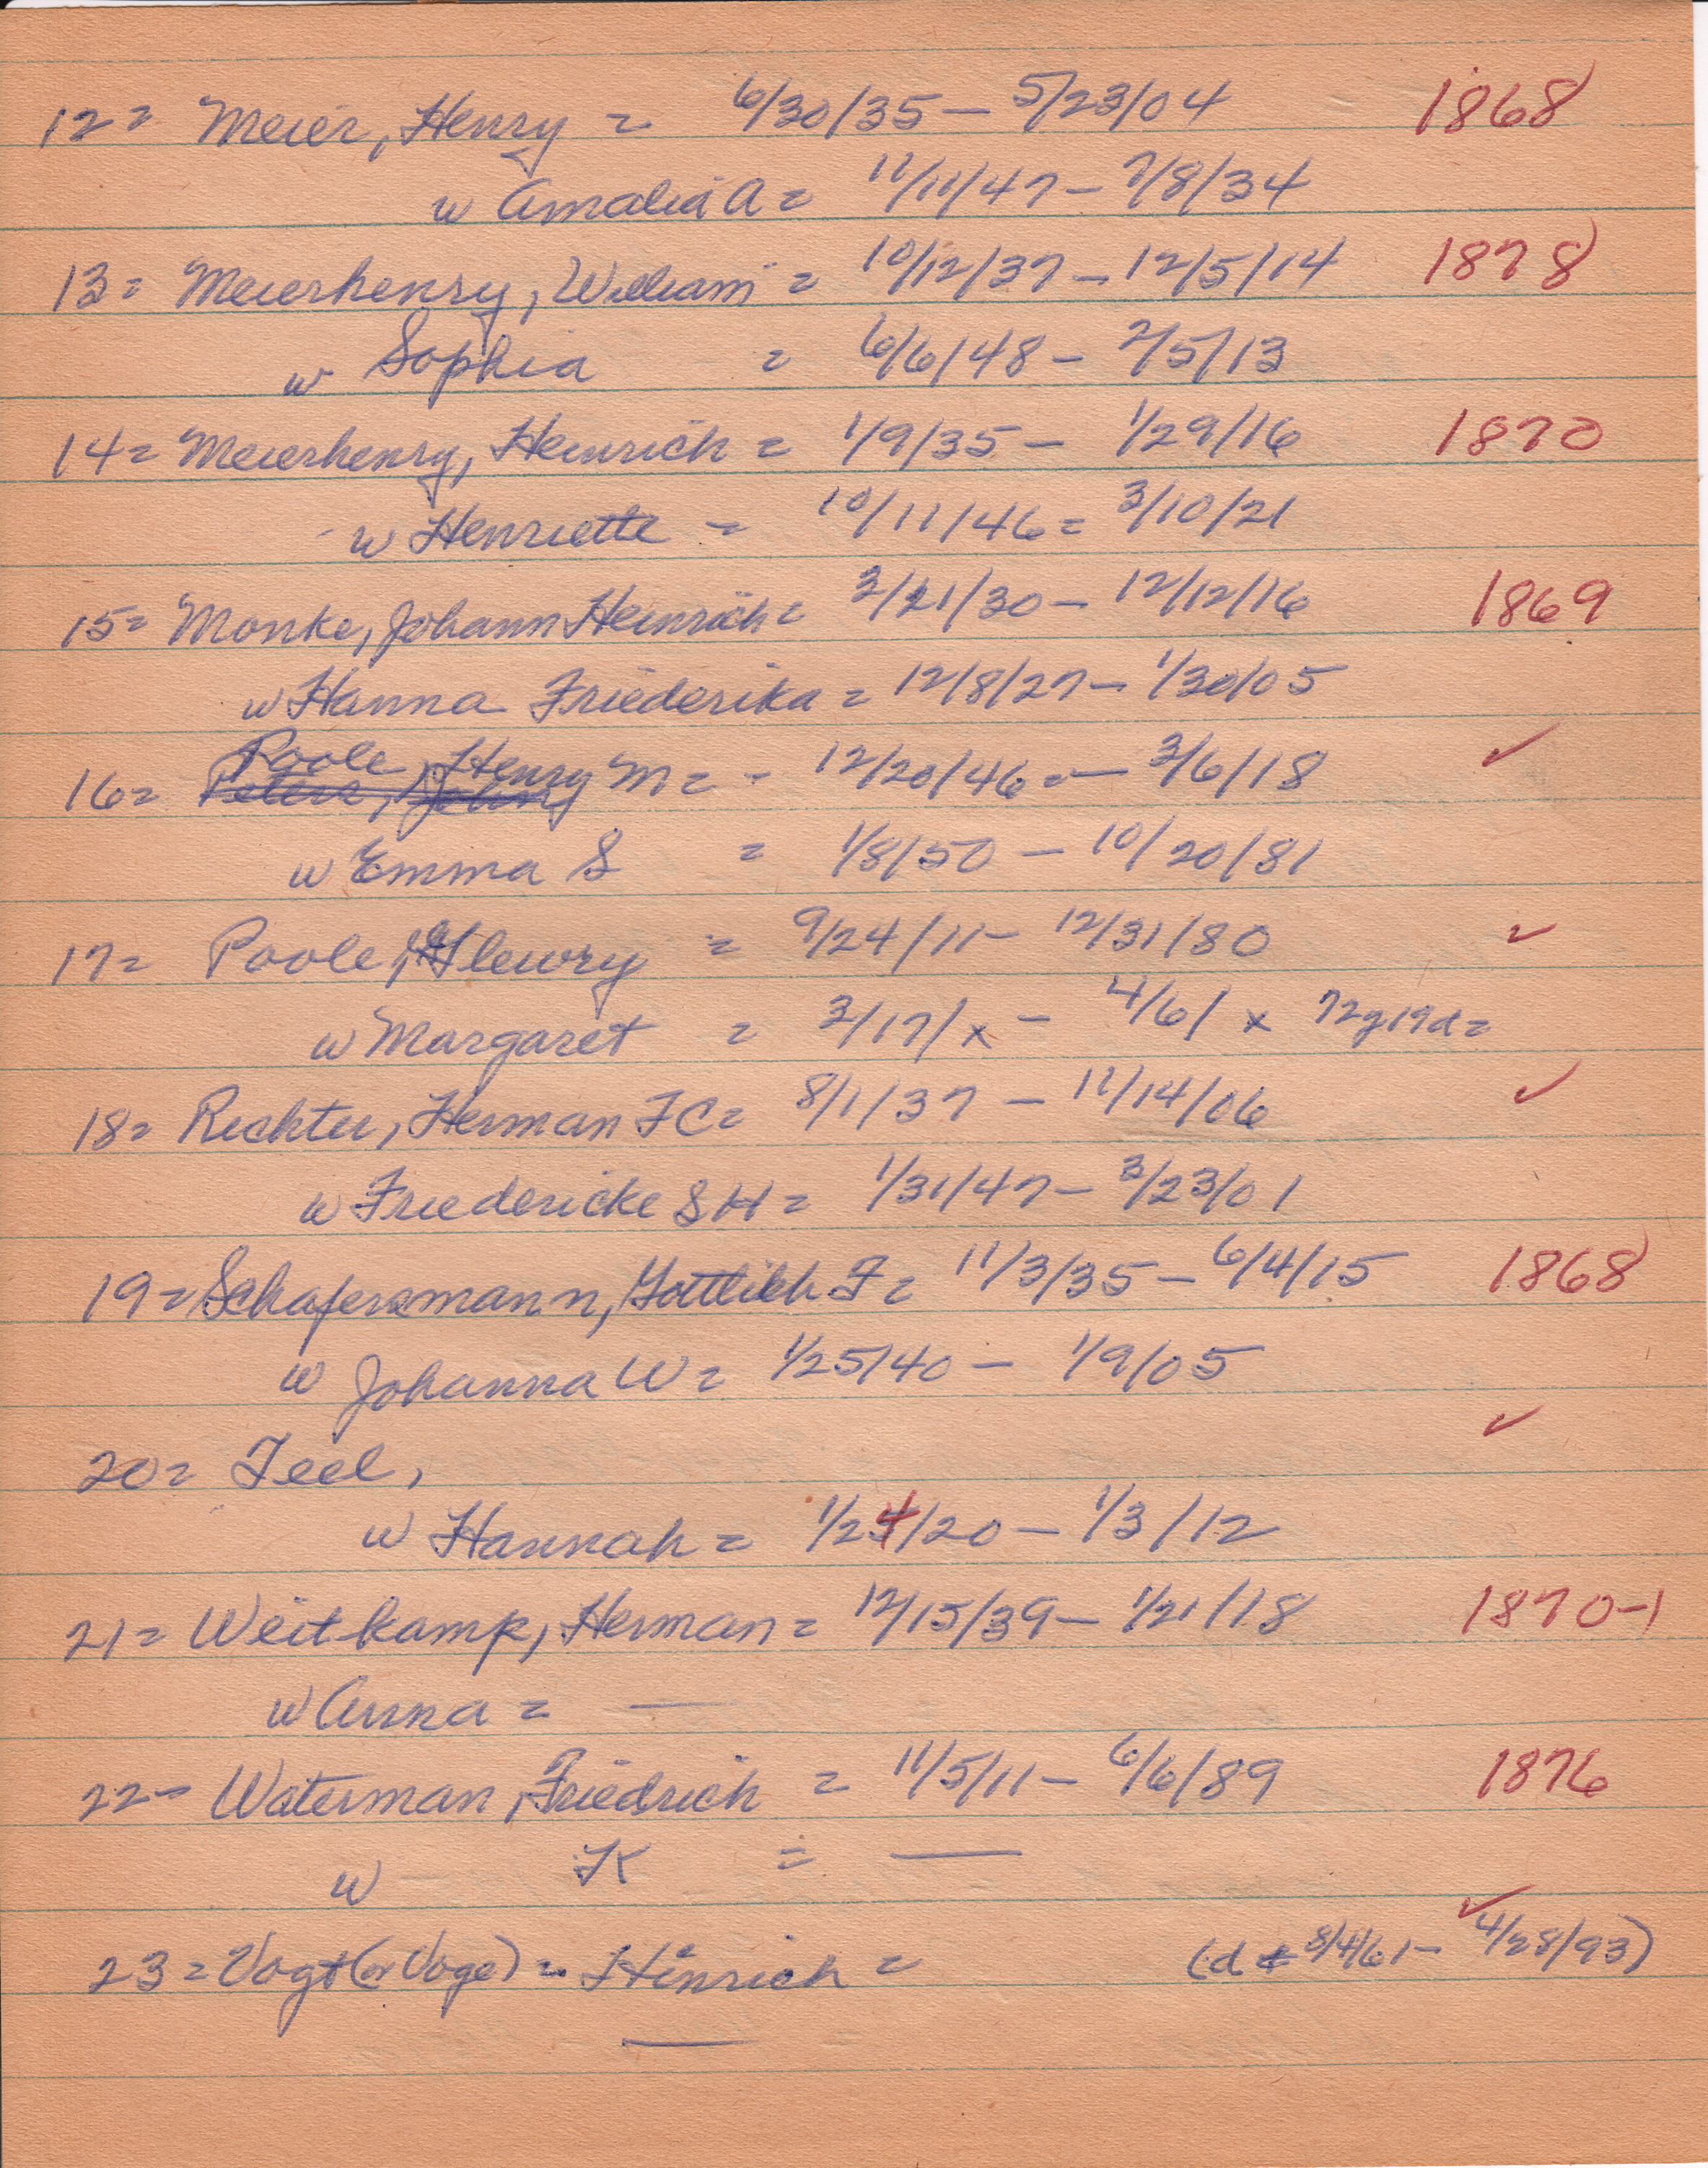 12= Meier, Henry = 6/30/35 – 5/23/04 1868
w Amalia A = 11/11/47 – 7/8/34
13= Meierhenry, William = 10/12/37 – 12/5/14 1878
w Sophia = 6/6/48 – 2/5/13
14= Meierhenry, Heinrich = 1/9/35 – 1/29/16 1870
w Henriette = 10/11/46 = 3/10/21
15= Monke, Johann Heinrich = 3/21/30 – 12/12/16 1869
w Hanna Friederika = 12/8/27 – 1/30/05
Poole, Henry
16= Peters, John M = - 12/20/46 = – 3/6/18 ✓
w Emma S = 1/8/50 – 10/20/81
17= Poole, Flewry = 9/24/11 – 12/31/80 ✓
w Margaret = 3/17/x – 4/6/ x 72y19d =
18= Richter, Herman FC = 8/1/37 – 11/14/06 ✓
w Friedericke SH = 1/31/47 – 3/23/01
19= Schafersmann, Gottlieb F = 11/3/35 – 6/4/15 1868
w Johanna W = 1/25/40 – 1/9/05
20= Teel, ✓
w Hannah = 1/24/20 – 1/3/12
21= Weitkamp, Herman = 12/15/39 – 1/21/18 1870-1
w Anna = —
22= Waterman, Friedrich = 11/5/11 – 6/6/89 1876
w K = —
23= Vogt (or Voge) = Hinrich = (d 8/4/61 – 4/28/93) ✓